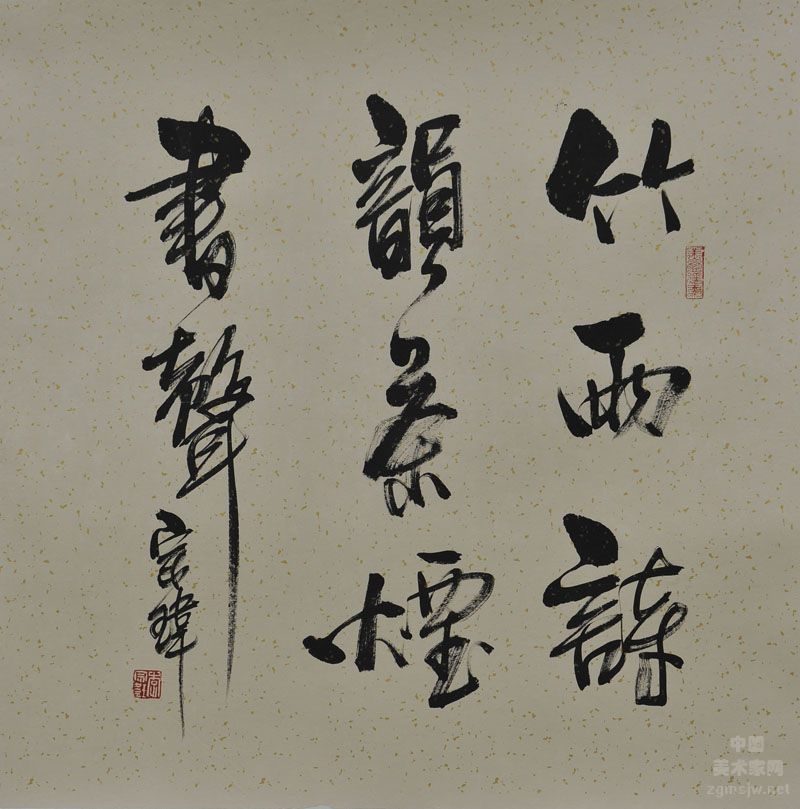 竹雨詩
韻茶煙
書聲
宗瑋
中国
美术家网
zgmsjw.net